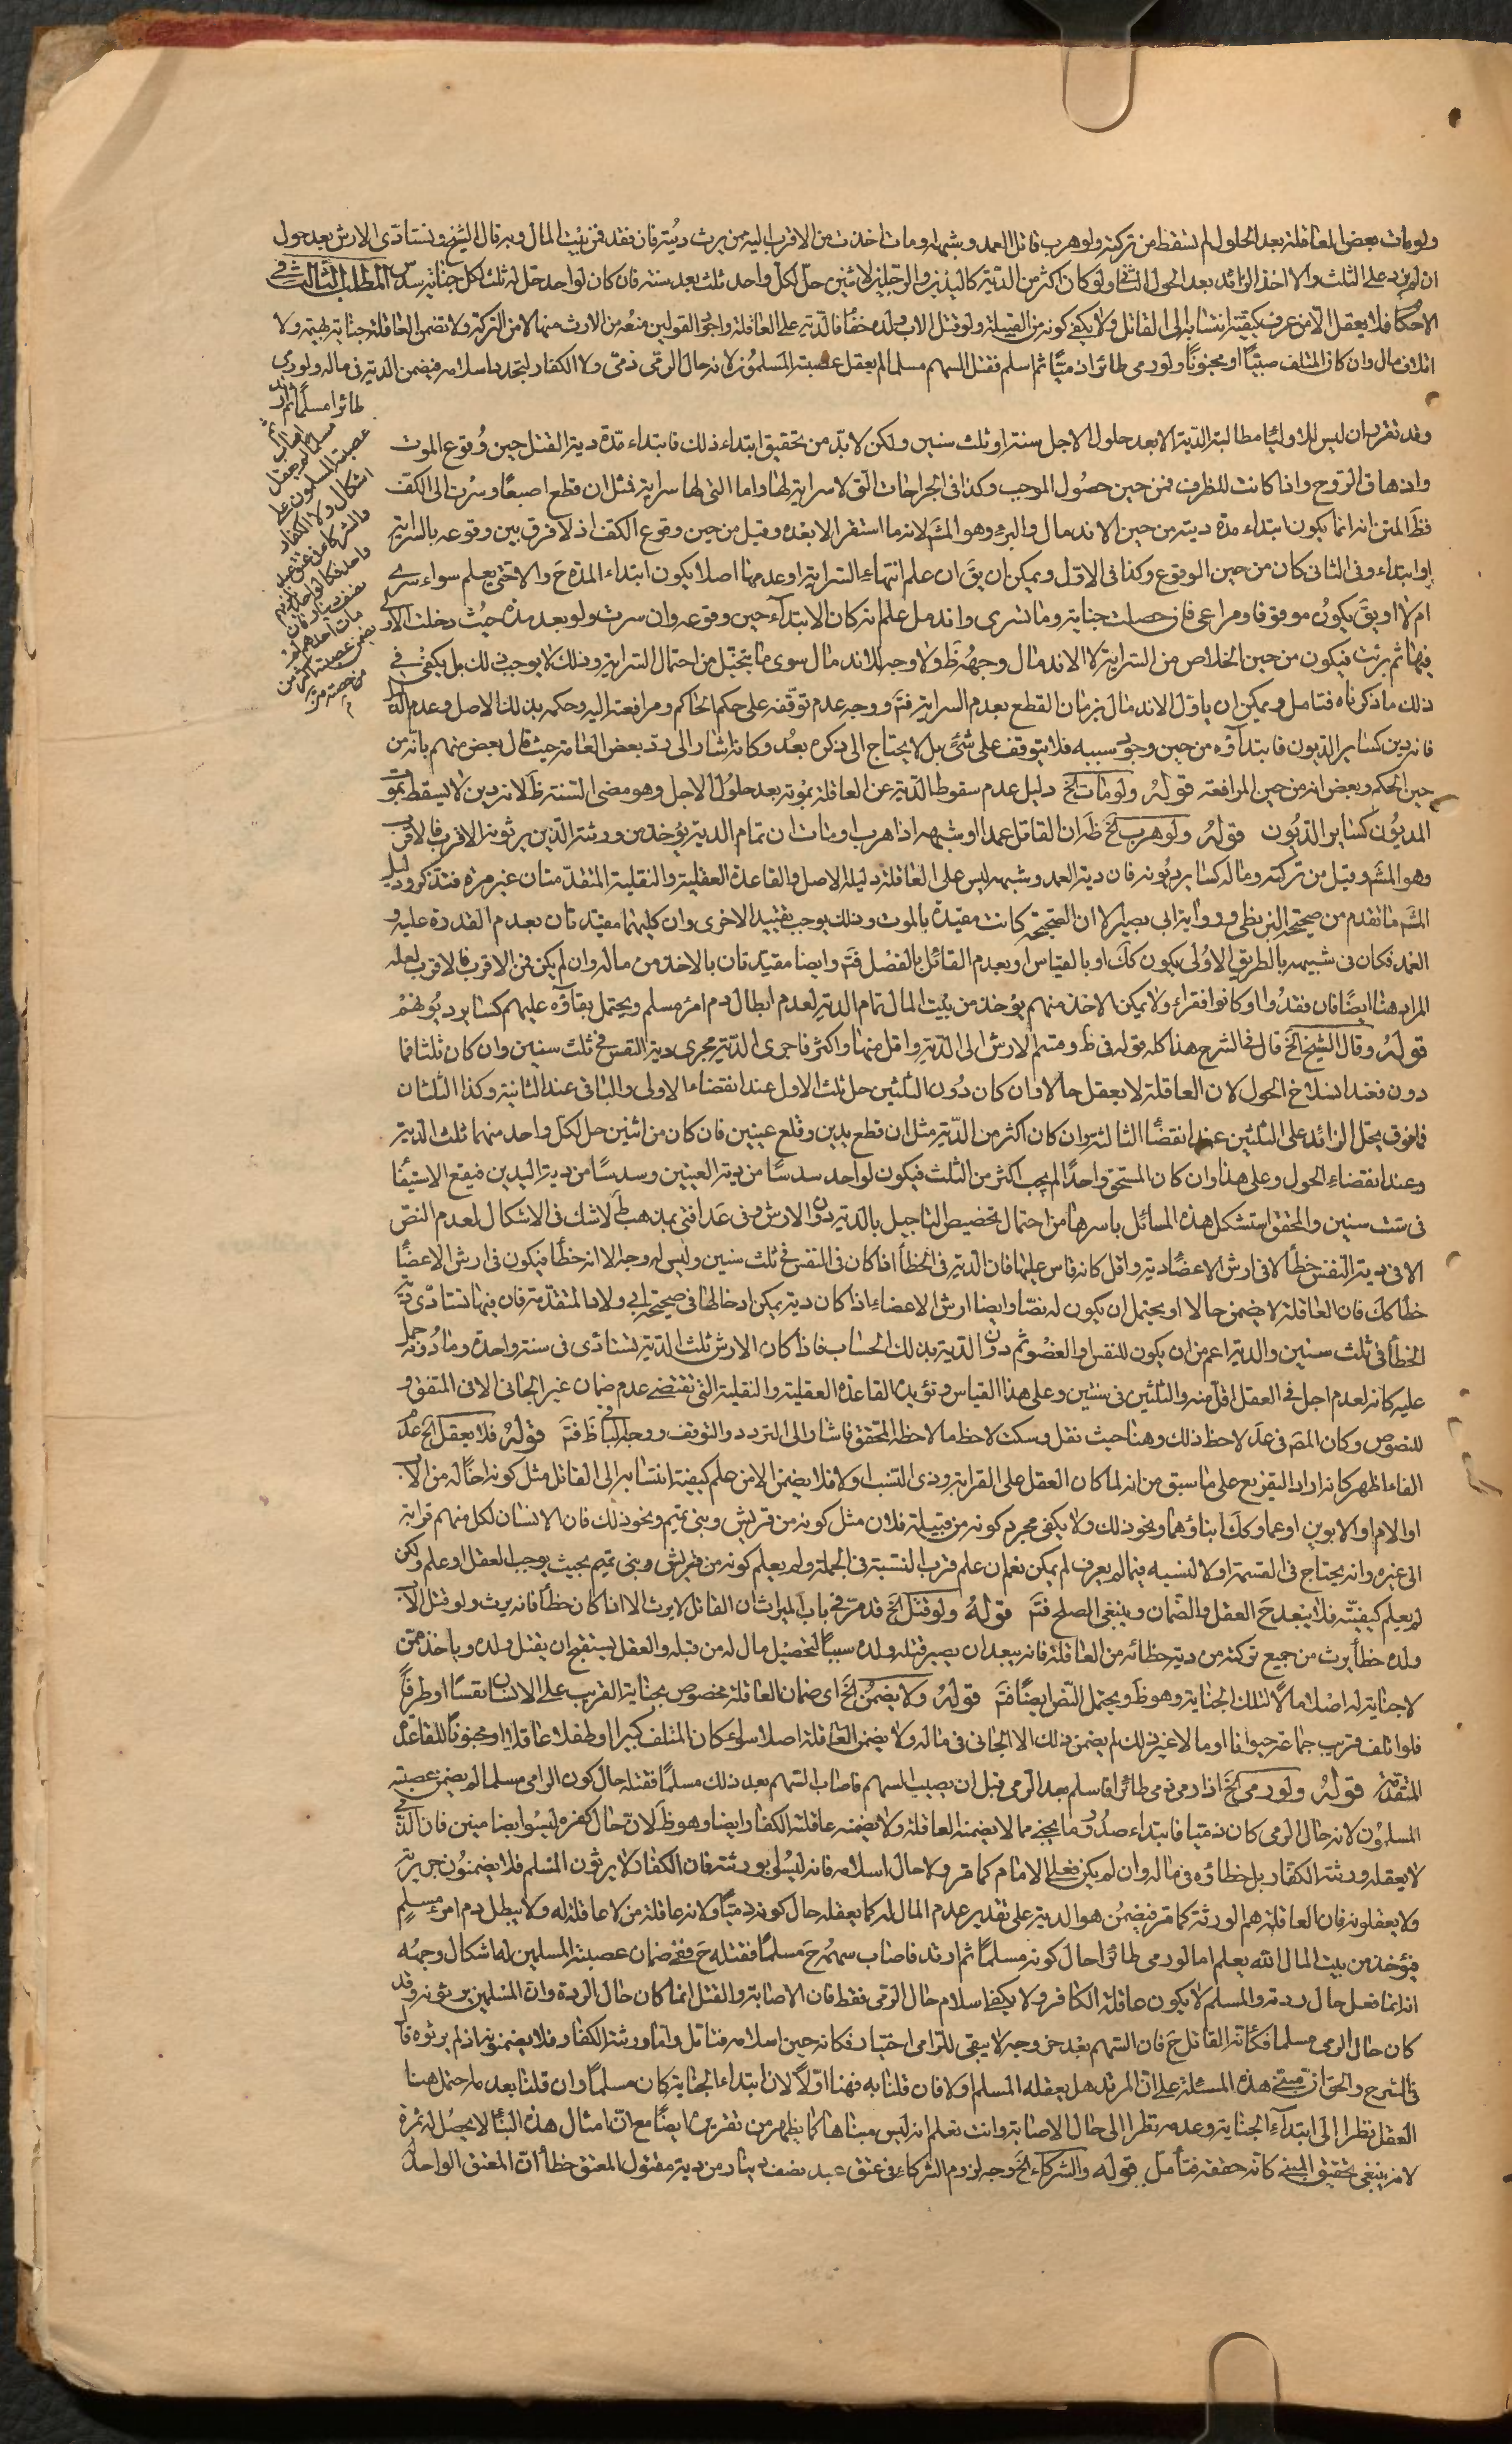 ولو مات بعض العاقلة بعد الحلول لم تسقط من تركته ولو هرب قاتل العمد وشبهه او مات اخذت من الاقرب اليه ممن يرث ديته فان فقد فمن بيت المال وبه قال الشيخ وتستادى الارش بعد حول
ان لم يزد على الثلث والا اخذ الزائد بعد الحول الثانى ولو كان اكثر من الدية كاليدين والرجلين لاثنين حل لكل واحد ثلث بعد سنة فان كان لواحد حل له ثلث لكل جناية سدس المطلب الثالث فى
الاحكام فلا يعقل الا من عرف كيفية انتسابه الى القاتل ولا يكفى كونه من القبيلة ولو قتل الاب ولده خطأ فالدية على العاقلة واجود القولين منعه من الارث منها لا من التركة ولا تضمن العاقلة جناية بهيمة ولا
اتلاف مال وان كان المتلف صبيًّا او مجنونًا ولو رمى طائرا ذميًّا ثم اسلم فقتل السهم مسلما لم يعقل عصبته المسلمون لانه حال الرمى ذمى ولا الكفار لتجدد اسلامه فيضمن الدية فى ماله ولو رمى
طائرا مسلمًا ثم ارتد
مسلما لم يعقل
عصبته المسلمون على
اشكال ولا الكفار
والشركاء فى عتق عبد
واحد كالواحد
نصف دينار فان
مات احدهم لم
يضمن عصبته اكثر من
حصته
وقد تقرر ان ليس للاولياء مطالبة الدية الا بعد حلول الاجل سنة او ثلث سنين ولكن لا بدّ من تحقيق ابتداء ذلك فابتداء مدّة دية القتل حين وُقوع الموت
واذهاق الروح واذا كانت للطرف فمن حين حصُول الموجب وكذا فى الجراحات التى لا سراية لها واما التى لها سراية مثل ان قطع اصبعًا وسُرت الى الكف
فظ المتن انه انما يكون ابتداء مدة ديته من حين الاندمال والبرء وهو المشَـ لانه ما استقر الا بعده وقيل من حين وقوع الكف اذ لا فرق بين وقوعه بالسراية
او ابتداء وفى الثانى كان من حين الوقوع وكذا فى الاول ويمكن ان يقَ ان علم انتهاء السراية او عدمها اصلا يكون ابتداء المدة حَ والا حتى يعلم سواء سرى
ام لا او يقَ يكونُ موقوفا ومراعى فان حصلت جناية وما تسرى واندمل علم انه كان الابتدآء حين وقوعه وان سرت ولو بعد مدة حيث دخلت الاولى
فيها ثم برئت فيكون من حين الخلاص من السراية لا الاندمال وجهه ظَ ولا وجه للاندمال سوى ما يتخيّل من احتمال السراية وذلك لا يوجب ذلك بل يكفى فى
ذلك ما ذكرناه فتامل ويمكن ان ياول الاندمال بزمان القطع بعدم السراية فتَـ ووجه عدم توقّفه على حكم الحاكم ومرافعته اليه وحكمه بذلك الاصل وعدم
فانه دين كسائر الديون فابتدآؤه من حين وجود سببه فلا يتوقف على شئ بل لا يحتاج الى ذكره بعُد وكانه اشار الى ردّ بعض العامة حيث قال بعض منهم بانه من
حين الحكم وبعض انه من حين المرافعة قوله ولو مات الخ دليل عدم سقوط الدّية عن العاقلة بموته بعد حلول الاجل وهو مضى السنة ظَ لانه دين لا يسقط بموت
المديُون كسائر الديُون قوله ولو هرب الخ ظَ ان القاتل عمدا او شبهه اذا هرب او مات ان تمام الدية يؤخذ من ورثته الذين يرثونه الاقرب فالاقرب
وهو المشَـ وقيل من تركته وماله كسائر ديُونه فان دية العمد وشبهه ليس على العاقلة دليله الاصل والقاعدة العقلية والنقلية المتقدّمتان غير مرة فتذكر ودليل
المشَـ ما تقدم من صحيحة البزنطى ورواية ابى بصير الا ان الصّحيحة كانت مقيّدة بالموت وذلك يوجب تقييد الاخرى وان كليهما مقيّدتان بعدم القدرة عليه و
العمد فكان فى شبيهه بالطريق الاُولى يكون كك او بالقياس او بعدم القائل بالفصْل فتَـ وايضا مقيّدتان بالاخذ من ماله وان لم يكن فمن الاقرب فالاقرب لعله
المراد هنا ايضًا فان فقدُوا او كانوا فقراء ولا يمكن الاخذ منهم يؤخذ من بيت المال تمام الدية لعدم ابطال دم امرء مسلم ويحتمل بقاؤه عليهم كسائر ديُونهمْ
قوله وقال الشيخ الخ قال فى الشرح هذا كله قوله فى ظ وقسم الارش الى الدّية واقل منها واكثر فاجرى الدّية مجرى دية النفس فى ثلث سنين وان كان ثلثا فما
دون فعند انسلاخ الحول لان العاقلة لا يعقل حالا وان كان دُون الثلثين حل ثلث الاول عند انقضاء الاولى والباقى عند الثانية وكذا الثلثان
فما فوق يحل الزائد على الثلثين عند انقضاء الثالثة وان كان اكثر من الدّية مثل ان قطع يدين وقلع عينين فان كان من اثنين حل لكل واحد منهما ثلث الدية
وعند انقضاء الحول وعلى هذا وان كان المستحق واحدًا لم يجب اكثر من الثلث فيكون لواحد سدسًا من دية العينين وسدسًا من دية اليدين فيقع الاستيفا
فى ست سنين والمحقق استشكل هذه المسائل باسرها من احتمال تخصيص التاجيل بالدية دون الارش وفى عَد افتى بمذهب ط لا شك فى الاشكال لعدم النصّ
الا فى دية النفس خطأ لا فى ارش الاعضاء دية واقل كانه قاس عليها فان الدية فى الخطأ اذا كان فى النفس فى ثلث سنين وليس له وجه الا انه خطأ فيكون فى ارش الاعضا
خطأ كك فان العاقلة لا يضمن حالا او يحتمل ان يكون له نصّا وايضا ارش الاعضاء اذا كان دية يمكن ادخالها فى صحيحة ابى ولاد المتقدّمة فان فيها تستادى دية
الخطأ فى ثلث سنين والدية اعم من ان يكون للنفس او العضو ثم دون الدية بذلك الحساب فاذا كان الارش ثلث الدّية تستادى فى سنة واحدة وما دُونه حمل
عليه كانه لعدم اجل فى العقل اقل منه والثلثين فى سنتين وعلى هذا القياس ويؤيده القاعدة العقلية والنقلية التى تقتضى عدم ضمان غير الجانى الا فى المتفق و
للنصوص وكان المصَ فى عدَ لاحظ ذلك وهنا حيث نقل وسكت لاحظ ما لاحظه المحقق فاشار الى التردد والتوقف ووجه البناء ظَ فتَـ قوله فلا يعقل الخ هذه
الفاء اظهر كانه اراد التفريع على ما سبق من انه لما كان العقل على القرابة وذى النسب اولا فلا يضمن الا من علم كيفية انتسابه الى القاتل مثل كونه اخًا له من الاب
او الام او الابوين او عما وكك ابناؤهما ونحو ذلك ولا يكفى مجرد كونه من قبيلة فلان مثل كونه من قريش وبنى تميم ونحو ذلك فان الانسان لكل منهم قرابة
الى غيره وانه يحتاج فى القسمة اولا لنسبه فيما لم يعرف لم يمكن نعم ان علم قرب النسبة فى الجملة ولم يعلم كونه من قريش وبنى تميم بحيث يوجب العقل او علم ولكن
لم يعلم كيفيته فلا يبعد حَ العقل والضّمان وينبغى الصلح فتَـ قوله ولو قتل الخ قد مرّ فى باب الميراث ان القاتل لا يرث الا اذا كان خطأ فانه يرث ولو قتل الاب
ولده خطأ يرث من جميع تركته من دية خطائه من العاقلة فانه يبعد ان يصير قتله ولده سببا لتحصيل مال له من قبله والعقل يستقبح ان يقتل ولده وياخذ ممّن
لا جناية له اصلا مالًا لتلك الجناية وهو ظَ ويحتمل النصّ ايضًا فتَـ قوله ولا يضمن الخ اى ضمان العاقلة مخصوص بجناية القريب على الانسان نفسًا او طرفًا
فلو اتلف قريب جماعة حيوانا او مالا غير ذلك لم يضمن ذلك الا الجانى فى ماله ولا يضمن العاقلة اصلا سواء كان المتلف كبيرا او طفلا عاقلا او مجنونًا للقاعدة
المتقدّمة قوله ولو رمى الخ اذا رمى ذمى طائرا فاسلم بعد الرمى قبل ان يصيب السهم فاصاب السّهم بعد ذلك مسلمًا فقتله حال كون الرامى مسلما لم يضمن عصبته
المسلمُون لانه حال الرمى كان ذميّا فابتداء صدُور ما يجنى مما لا يضمنه العاقلة ولا يضمنه عاقلته الكفار ايضا وهو ظَ لان حال كفره ليسُوا بضامنين فان الذّمى
لا يعقله ورثته الكفّار بل خطاؤه فى ماله وان لم يكن فعلى الامام كما مرّ ولا حال اسلامه فانه ليسُوا بورثته فان الكفار لا يرثون المسلم فلا يضمنُون جريرته
ولا يعقلونه فان العاقلة هم الورثة كما مر فيضمن هو الدية على تقدير عدم المال له كما يعقله حال كونه ذميّا ولانه عاقلة من لا عاقلة له ولا يبطل دم امرء مسلم
فيؤخذ من بيت المال الله يعلم اما لو رمى طائرا حال كونه مسلمًا ثم ارتد فاصاب سهمه حَ مسلمًا فقتله حَ ففى ضمان عصبته المسلمين له اشكال وجهه
انه انما فعل حال ردته والمسلم لا يكون عاقلة الكافر ولا يكفى اسلام حال الرمى فقط فان الاصابة والقتل انما كان حال الردة وان المسلمين يرثونه وقد
كان حال الرمى مسلما فكانه القاتل حَ فان السّهم بعد خروجه لا يبقى للرامى اختيار فكانه حين اسلامه فتامل واما ورثته الكفار فلا يضمنونه اذ لم يرثوه قال
فى الشرح والحق ان مبنى هذه المسئلة على ان المرتد هل يعقله المسلم اولا فان قلنا به فهنا اولًا لان ابتداء الجناية كان مسلمًا وان قلنا بعدمه احتمل هنا
العقل نظرا الى ابتدآء الجناية وعدمه نظرا الى حال الاصابة وانت تعلم انه ليس مبناها كما يظهر من تقريره ايضًا مع ان امثال هذه البناء لا يحصُل له ثمرة
لانه ينبغى تحقيق المبنى كانه حققه فتأمل قوله والشركاء الخ وجه لزوم الشركاء فى عتق عبد نصف دينار من دية مقتول المعتق خطأ ان المعتق الواحد